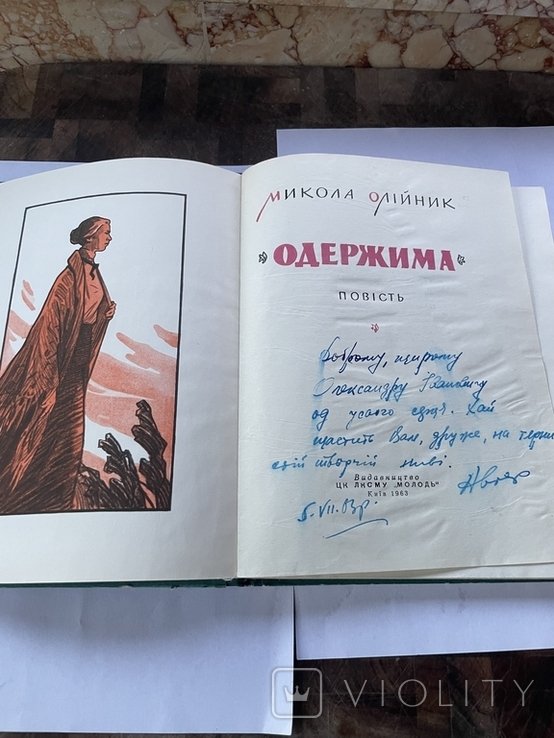 Микола Олійник
«ОДЕРЖИМА»
ПОВІСТЬ
Доброму, щирому
Олександру Івановичу
од усього серця. Хай
щастить Вам, друже, на терни-
стій творчій ниві.
Видавництво
ЦК ЛКСМУ „МОЛОДЬ"
Київ 1963
5.VII.63р.
VIOLITY